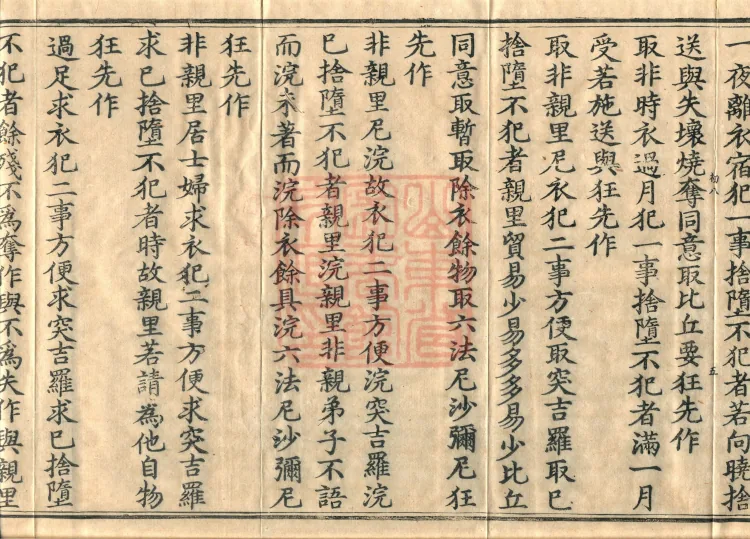 一夜離衣宿犯一事捨墮不犯者若向曉捨
初八 五
送與失壞燒奪同意取比丘要狂先作
取非時衣過月犯一事捨墮不犯者滿一月
受若施送與狂先作
取非親里尼衣犯二事方便取突吉羅取已
捨墮不犯者親里貿易少易多多易少比丘
同意取暫取除衣餘物取六法尼沙彌尼狂
先作
非親里尼浣故衣犯二事方便浣突吉羅浣
已捨墮不犯者親里浣親里非親弟子不語
而浣未著而浣除衣餘具浣六法尼沙彌尼
狂先作
非親里居士婦求衣犯二事方便求突吉羅
求已捨墮不犯者時故親里若請為他自物
狂先作
過足求衣犯二事方便求突吉羅求已捨墮
不犯者餘殘不為奪作與不為失作與親里